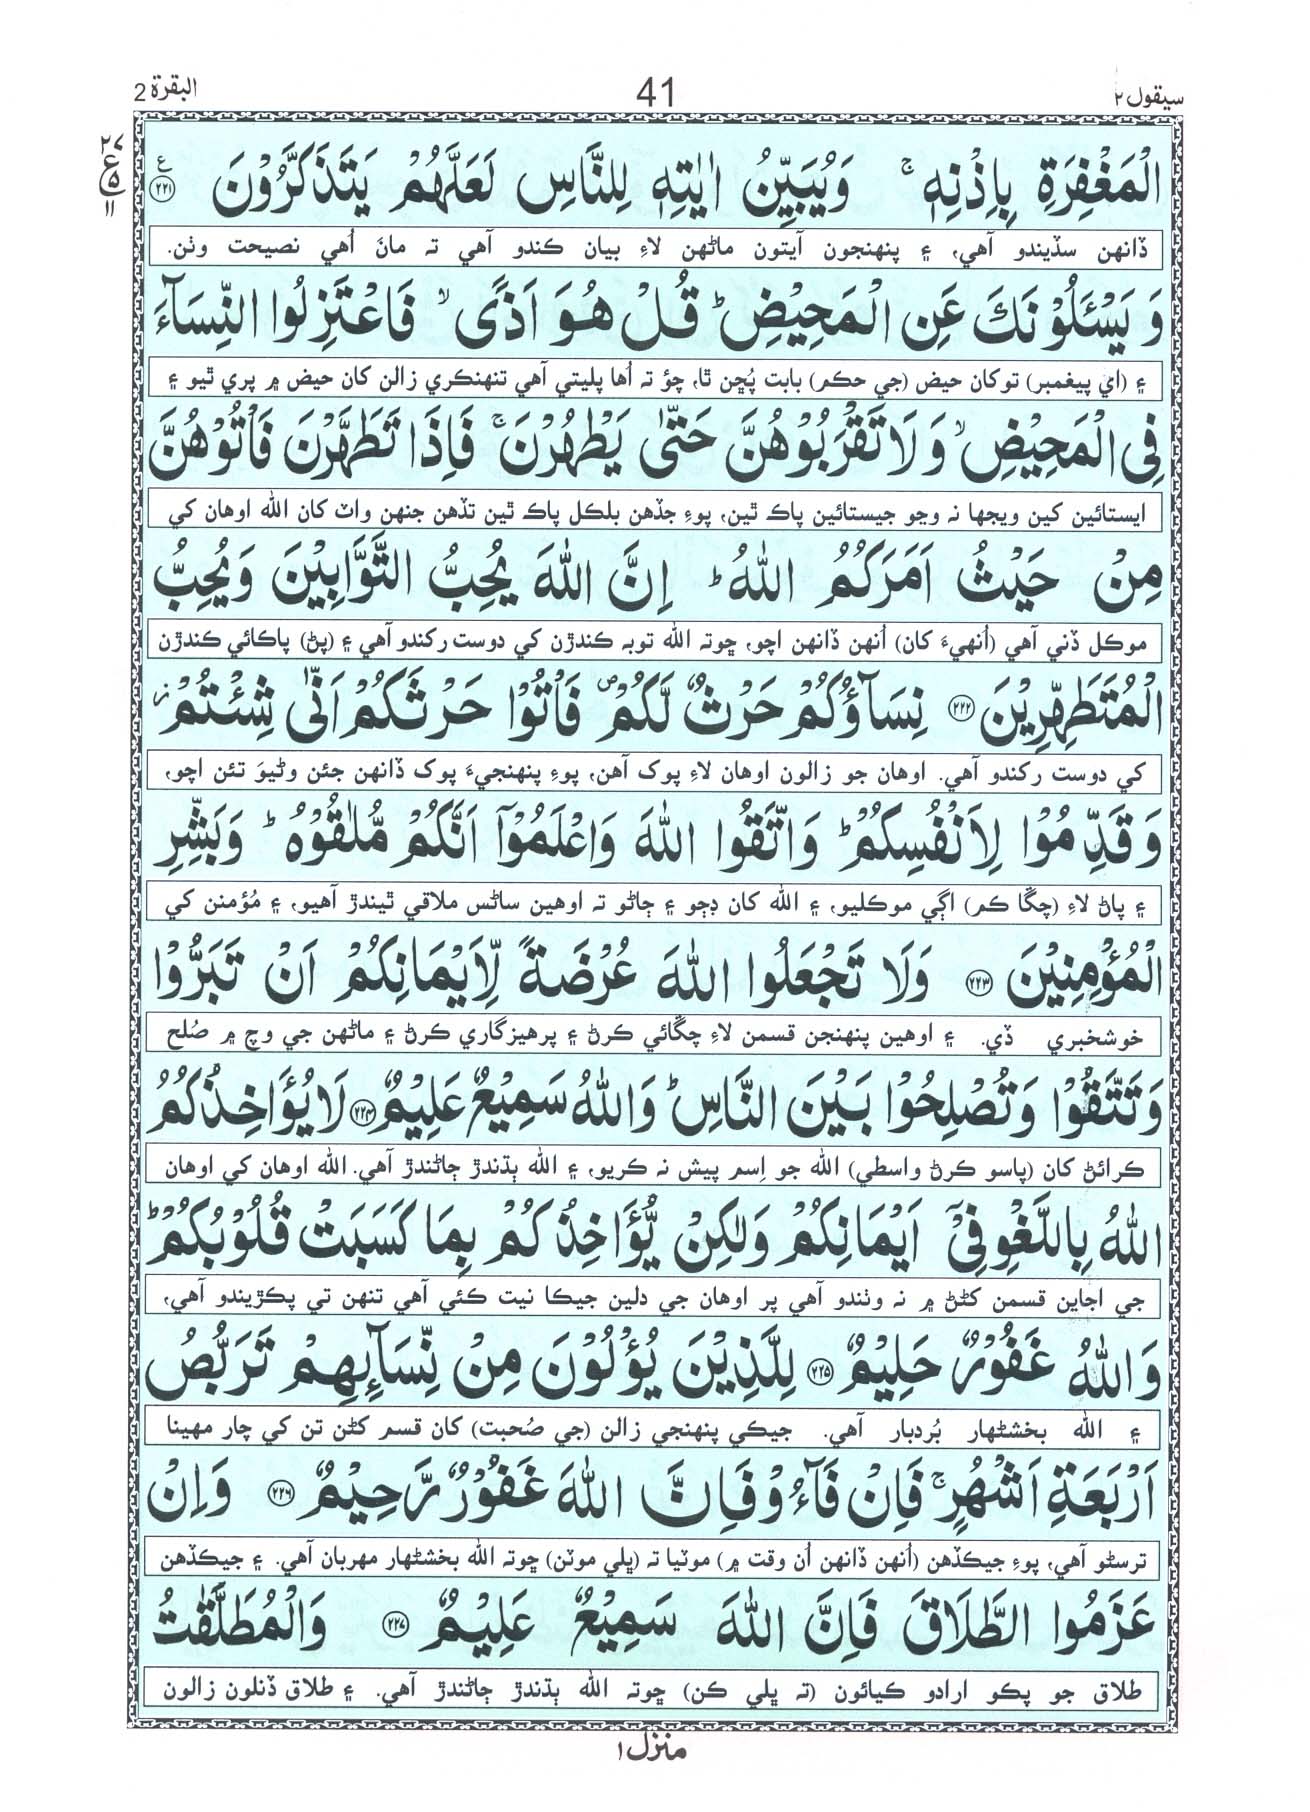 سيقول ٢ 41 البقرة 2
الْمَغْفِرَةِ بِاِذْنِهٖ ۚ وَيُبَيِّنُ اٰيٰتِهٖ لِلنَّاسِ لَعَلَّهُمْ يَتَذَكَّرُوْنَ ﴿٢٢١﴾ ع
٢٧ ع ٥ ١١
ڏانهن سڏيندو آهي، ۽ پنهنجون آيتون ماڻهن لاءِ بيان ڪندو آهي تہ مانَ اُهي نصيحت وٺن.
وَيَسْـَٔلُوْنَكَ عَنِ الْمَحِيْضِ ؕ قُلْ هُوَ اَذًى ۙ فَاعْتَزِلُوا النِّسَآءَ
۽ (اي پيغمبر) توکان حيض (جي حڪم) بابت پُڇن ٿا، چؤ تہ اُها پليتي آهي تنهنڪري زالن کان حيض ۾ پري ٿيو ۽
فِى الْمَحِيْضِ ۙ وَلَا تَقْرَبُوْهُنَّ حَتّٰى يَطْهُرْنَ ۚ فَاِذَا تَطَهَّرْنَ فَاْتُوْهُنَّ
ايستائين کين ويجها نہ وڃو جيستائين پاڪ ٿين، پوءِ جڏهن بلڪل پاڪ ٿين تڏهن جنهن واٽ کان الله اوهان کي
مِنْ حَيْثُ اَمَرَكُمُ اللّٰهُ ؕ اِنَّ اللّٰهَ يُحِبُّ التَّوَّابِيْنَ وَيُحِبُّ
موڪل ڏني آهي (اُنهيءَ کان) اُنهن ڏانهن اچو، ڇوتہ الله توبہ ڪندڙن کي دوست رکندو آهي ۽ (پڻ) پاڪائي ڪندڙن
الْمُتَطَهِّرِيْنَ ﴿٢٢٢﴾ نِسَآؤُكُمْ حَرْثٌ لَّكُمْ ۪ فَاْتُوْا حَرْثَكُمْ اَنّٰى شِئْتُمْ ؗ
کي دوست رکندو آهي. اوهان جو زالون اوهان لاءِ پوک آهن، پوءِ پنهنجيءَ پوک ڏانهن جئن وڻيوَ تئن اچو،
وَقَدِّمُوْا لِاَنْفُسِكُمْ ؕ وَاتَّقُوا اللّٰهَ وَاعْلَمُوْٓا اَنَّكُمْ مُّلٰقُوْهُ ؕ وَبَشِّرِ
۽ پاڻ لاءِ (چڱا ڪم) اڳي موڪليو، ۽ الله کان ڊڄو ۽ ڄاڻو تہ اوهين ساڻس ملاقي ٿيندڙ آهيو، ۽ مُؤمنن کي
الْمُؤْمِنِيْنَ ﴿٢٢٣﴾ وَلَا تَجْعَلُوا اللّٰهَ عُرْضَةً لِّاَيْمَانِكُمْ اَنْ تَبَرُّوْا
خوشخبري ڏي. ۽ اوهين پنهنجن قسمن لاءِ چڱائي ڪرڻ ۽ پرهيزگاري ڪرڻ ۽ ماڻهن جي وچ ۾ صُلح
وَتَتَّقُوْا وَتُصْلِحُوْا بَيْنَ النَّاسِ ؕ وَاللّٰهُ سَمِيْعٌ عَلِيْمٌ ﴿٢٢٤﴾ لَا يُؤَاخِذُكُمُ
ڪرائڻ کان (پاسو ڪرڻ واسطي) الله جو اِسم پيش نہ ڪريو، ۽ الله ٻڌندڙ ڄاڻندڙ آهي. الله اوهان کي اوهان
اللّٰهُ بِاللَّغْوِ فِىْٓ اَيْمَانِكُمْ وَلٰكِنْ يُّؤَاخِذُكُمْ بِمَا كَسَبَتْ قُلُوْبُكُمْ ؕ
جي اجاين قسمن کڻڻ ۾ نہ وٺندو آهي پر اوهان جي دلين جيڪا نيت ڪئي آهي تنهن تي پڪڙيندو آهي،
وَاللّٰهُ غَفُوْرٌ حَلِيْمٌ ﴿٢٢٥﴾ لِلَّذِيْنَ يُؤْلُوْنَ مِنْ نِّسَآئِهِمْ تَرَبُّصُ
۽ الله بخشڻهار بُردبار آهي. جيڪي پنهنجي زالن (جي صُحبت) کان قسم کڻن تن کي چار مهينا
اَرْبَعَةِ اَشْهُرٍ ۚ فَاِنْ فَآءُوْ فَاِنَّ اللّٰهَ غَفُوْرٌ رَّحِيْمٌ ﴿٢٢٦﴾ وَاِنْ
ترسڻو آهي، پوءِ جيڪڏهن (اُنهن ڏانهن اُن وقت ۾) موٽيا تہ (ڀلي موٽن) ڇوتہ الله بخشڻهار مهربان آهي. ۽ جيڪڏهن
عَزَمُوا الطَّلَاقَ فَاِنَّ اللّٰهَ سَمِيْعٌ عَلِيْمٌ ﴿٢٢٧﴾ وَالْمُطَلَّقٰتُ
طلاق جو پڪو ارادو ڪيائون (تہ ڀلي ڪن) ڇوتہ الله ٻڌندڙ ڄاڻندڙ آهي. ۽ طلاق ڏنلون زالون
منزل ١